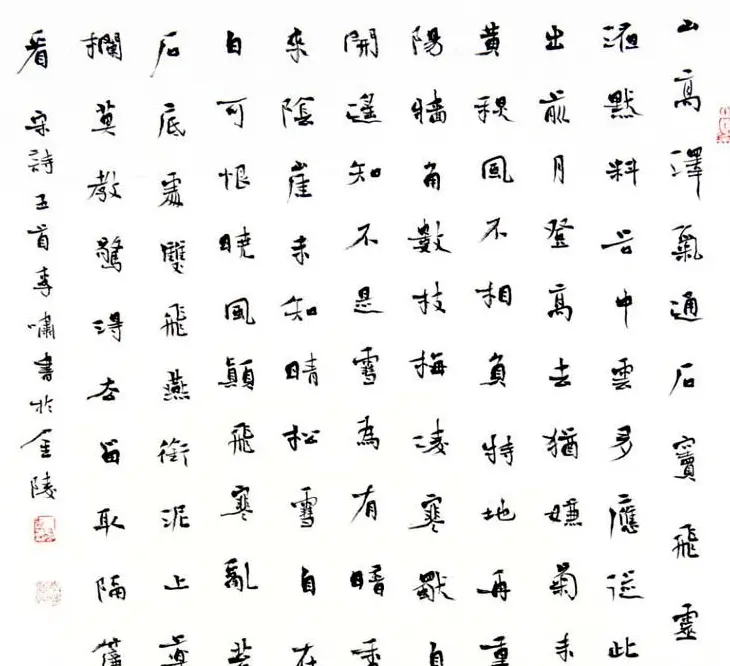 山高澤氣通石竇飛靈
液默料谷中雲多應從此
出前月登高去猶嫌菊未
黃秋風不相負特地再重
陽牆角數枝梅凌寒獨自
開遙知不是雪為有暗香
來陰崖未知晴松雪自在
白可恨曉風顛飛寒亂苔
石底處雙飛燕銜泥上藥
欄莫教驚得去留取隔簾
看
宋詩五首李嘯書於金陵